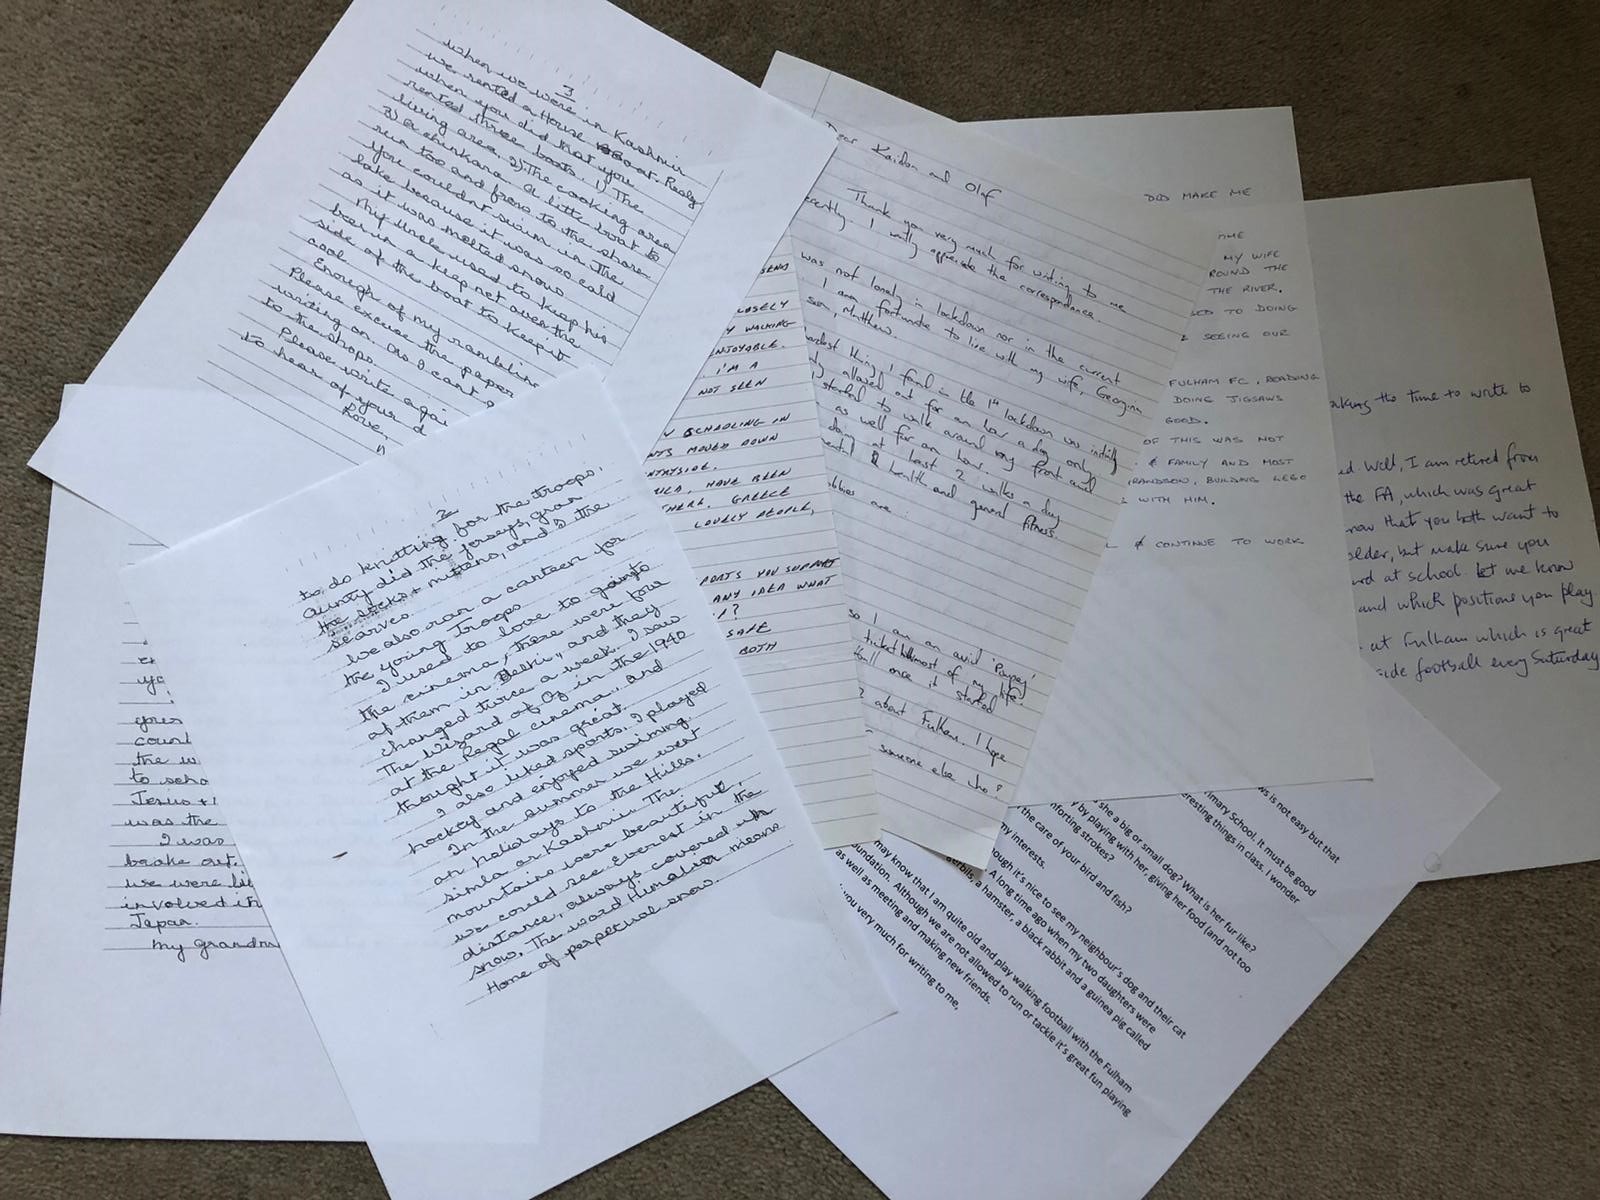 3
when we were in Kashmir
we rented a House Boat. Realy
when you did that you
rented three boats. 1) The
living area, 2) The cooking area
3) a chinkara a little boat to
run too and from to the shore
you couldn't swim in the
lake because it was so cold
as it was melted snow
My Uncle used to keep his
beer in a keep net over the
side of the boat to keep it
cool
Enough of my rambling
Please excuse the paper
writing on, as I cant g
to the shops.
Please write agai
to hear of your d
Love,
2
to do knitting for the troops,
Aunty did the jerseys, gran
the socks + mittens, and I the
scarves.
We also ran a canteen for
the young Troops
I used to love to going to
the cinema, there were four
of them in Delhi, and they
changed twice a week. I saw
The Wizard of Oz in the 1940
at the Regal cinema, and
thought it was great.
I also liked sports. I played
hockey and enjoyed swiming.
In the summer we went
on holidays to the Hills.
Simla or Kashmir. The
mountains were beautiful,
we could see Everest in the
distance, always covered with
snow. The word Himalier means
Home of perpetual snow.
yo
your
count
the w
to scho
Jesus +
was the
I was
broke out.
we were li
involved in
Japan.
My grandm
Dear Kaidon and Olaf
Thank you very much for writing to me
recently. I really appreciate the correspondance.
was not lonely in lockdown nor in the current
I am fortunate to live with my wife, Georgina
son, Matthew.
hardest thing I found in the 1st lockdown was initially
only allowed out for an hour a day only
started to walk around my front and
as well for an hour.
doing at least 2 walks a day
mental & health and general fitness.
obbies are:
so I am an avid
ticket most of my life.
once it started
about Fulham. I hope
someone else who?
SEND
LOSELY
Y WALKING
ENJOYABLE.
I'M A
NOT SEEN
SCHOOLING IN
NTS MOVED DOWN
NTRYSIDE.
RICA, HAVE BEEN
THERE. GREECE
LOVELY PEOPLE,
PORTS YOU SUPPORT
ANY IDEA WHAT
?
SAFE
BOTH
DID MAKE ME
ME
MY WIFE
ROUND THE
THE RIVER.
SED TO DOING
& SEEING OUR
FULHAM FC, READING
DOING JIGSAWS
GOOD.
OF THIS WAS NOT
& FAMILY AND MOST
GRANDSON, BUILDING LEGO
WITH HIM.
& CONTINUE TO WORK
aking the time to write to
ed. Well, I am retired from
the FA, which was great
now that you both want to
older, but make sure you
ard at school. Let me know
and which positions you play.
at Fulham which is great
side football every Saturday
ws is not easy but that
imary School. It must be good
eresting things in class. I wonder
she a big or small dog? What is her fur like?
y by playing with her, giving her food (and not too
mforting strokes?
the care of your bird and fish?
my interests.
hough it's nice to see my neighbour's dog and their cat
A long time ago when my two daughters were
gerbils, a hamster, a black rabbit and a guinea pig called
may know that I am quite old and play walking football with the Fulham
oundation. Although we are not allowed to run or tackle it's great fun playing
as well as meeting and making new friends.
you very much for writing to me,